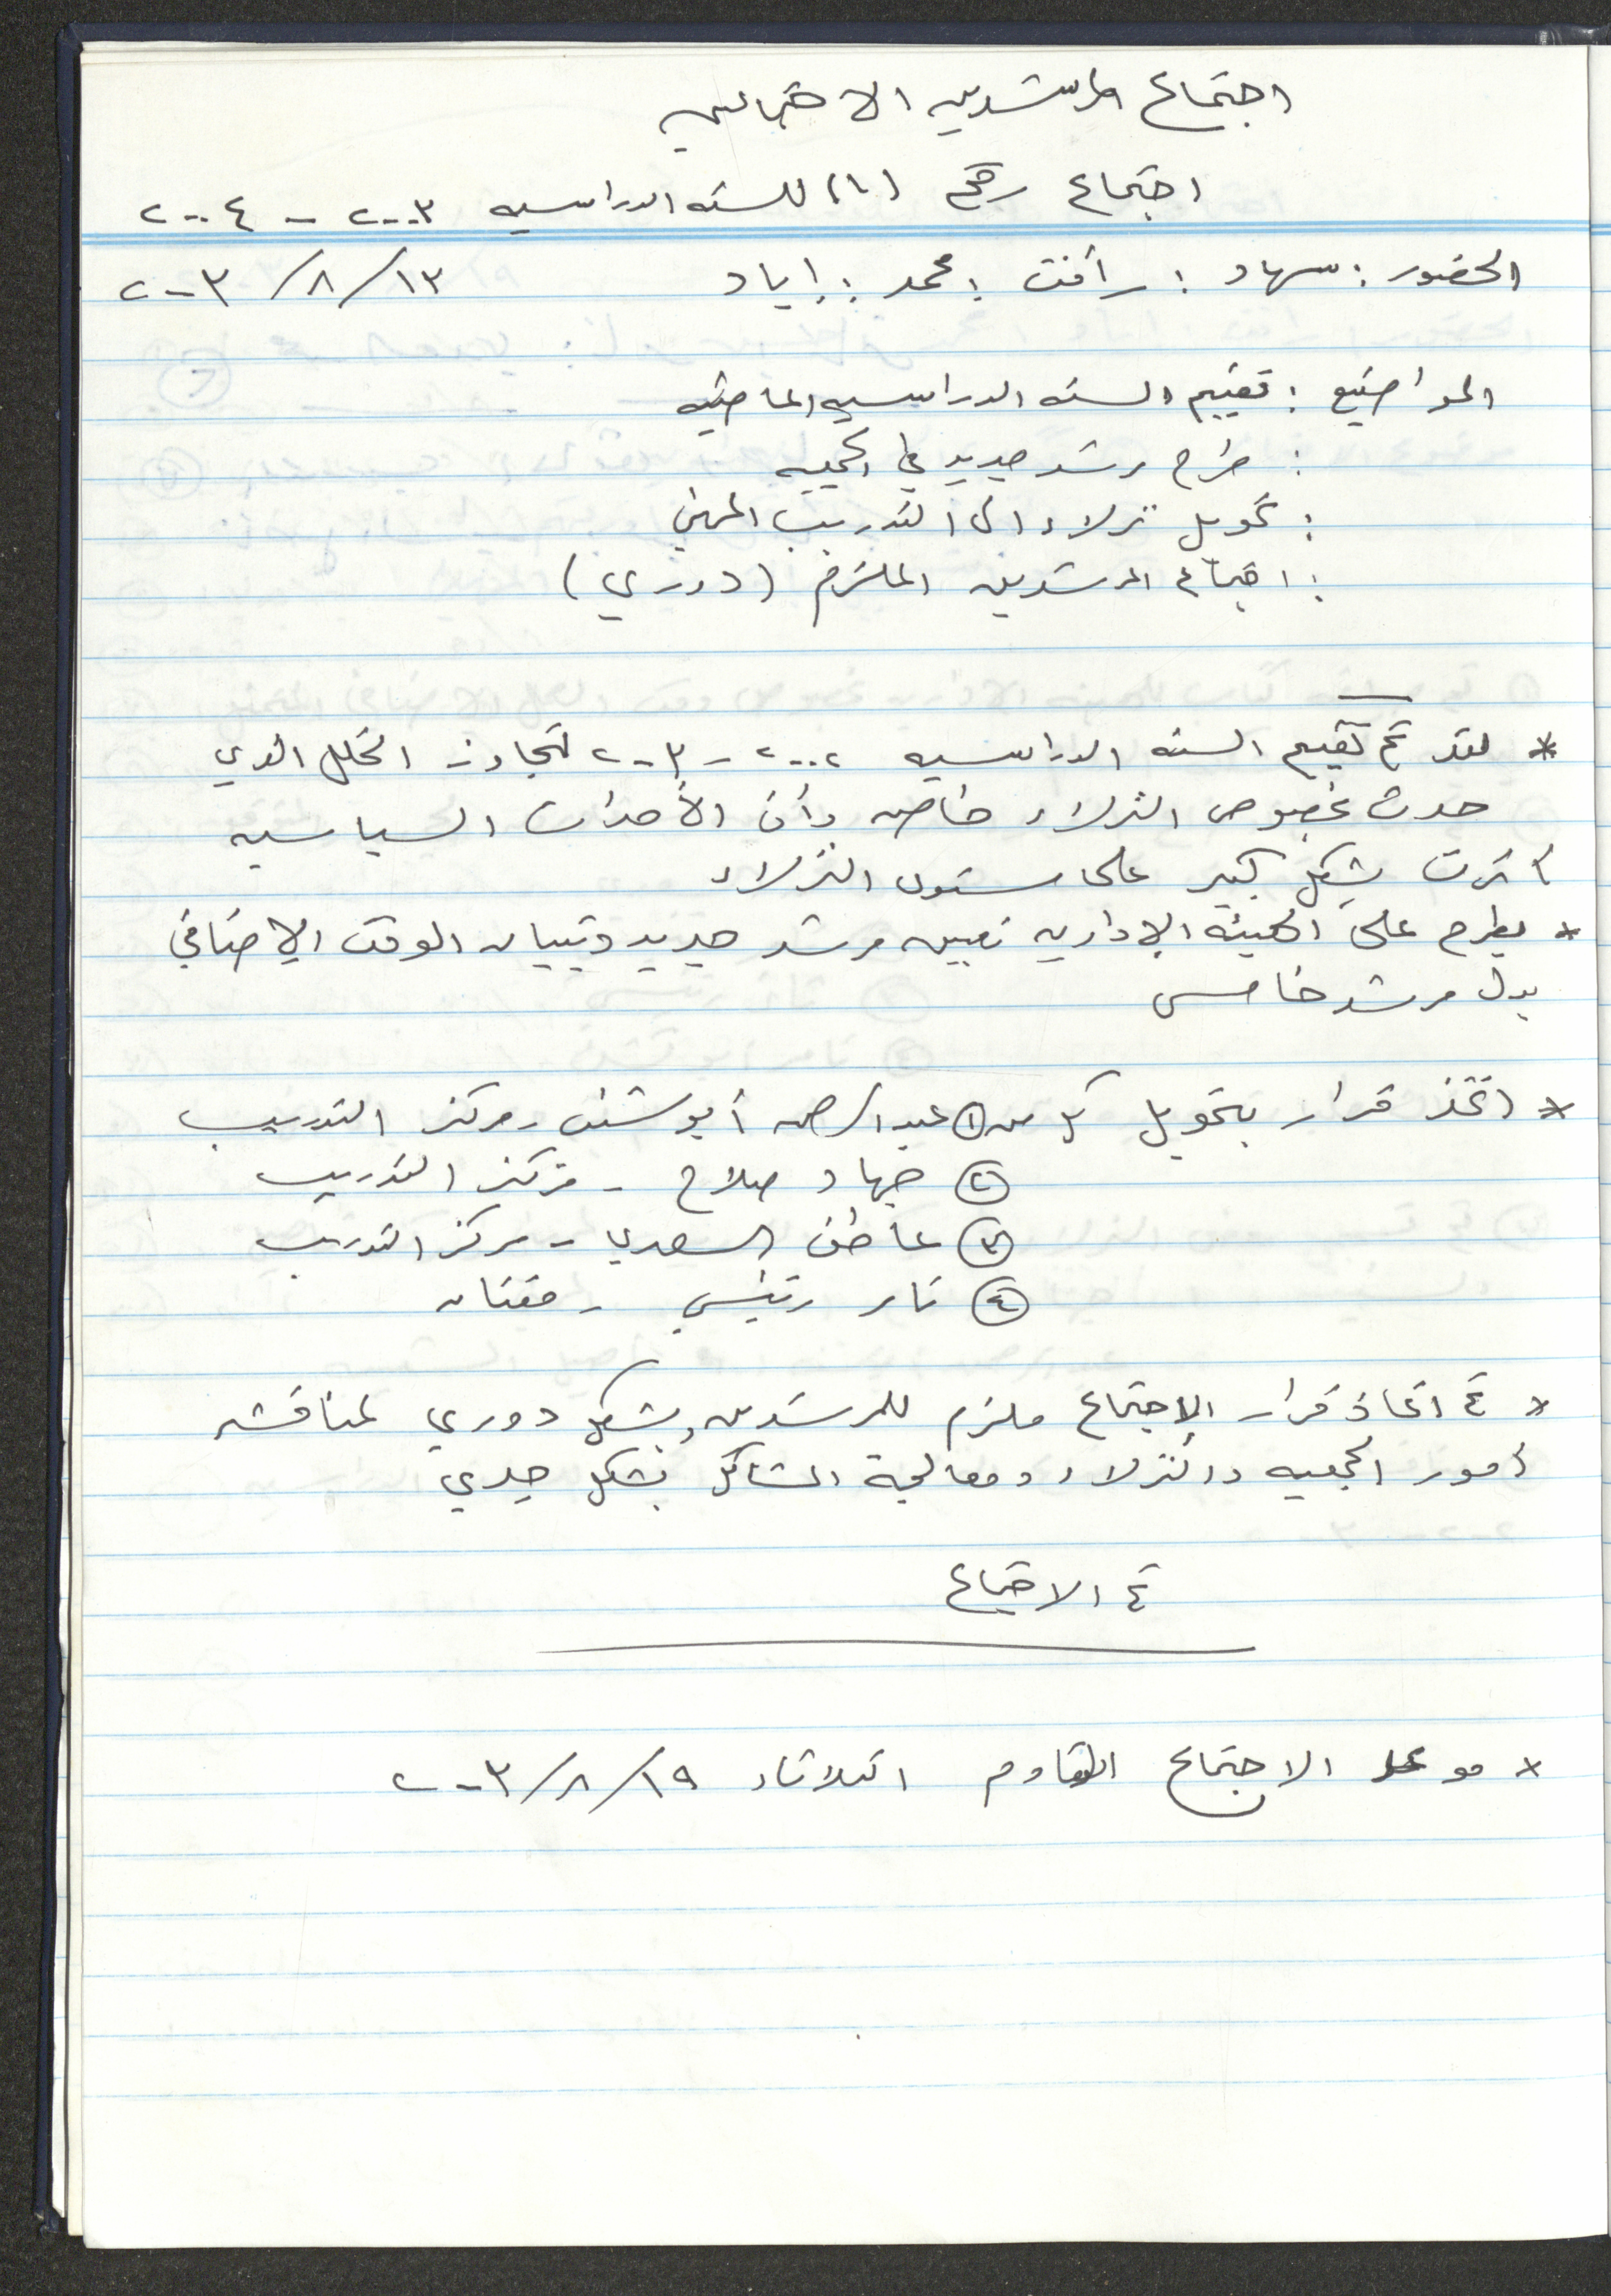 اجتماع المرشدين الاجتماعيين
اجتماع رقم (١) للسنه الدراسيه ٢٠٠٣ - ٢٠٠٤
الحضور : سهاد : رأفت : محمد : إياد ١٣/٨/٢٠٠٣
المواضيع : تقييم السنه الدراسيه الماضيه
: طرح مرشد جديد في الجمعيه
: تحويل نزلاء الى التدريب المهني
: اجتماع المرشدين الملزم (دوري)
* لقد تم تقييم السنه الدراسيه ٢٠٠٢ - ٢٠٠٣ لتجاوز الخلل الذي
حدث بخصوص النزلاء خاصه وأن الأحداث السياسيه
أثرت بشكل كبير على مستوى النزلاء
* يطرح على الهيئه الإداريه تعيين مرشد جديد وتبيان الوقت الإضافي
بدل مرشد خامس
* اتخذ قرار بتحويل كل من ① عبد الرحمن أبو - مركز التدريب
② جهاد صلاح - مركز التدريب
③ عاطف السعدي - مركز التدريب
④ ثائر -
* تم اتخاذ قرار الإجتماع ملزم للمرشدين وبشكل دوري لمناقشه
أمور الجمعيه والنزلاء ومعالجة المشاكل بشكل جدي
تم الاجتماع
* موعد الاجتماع القادم الثلاثاء ١٩/٨/٢٠٠٣